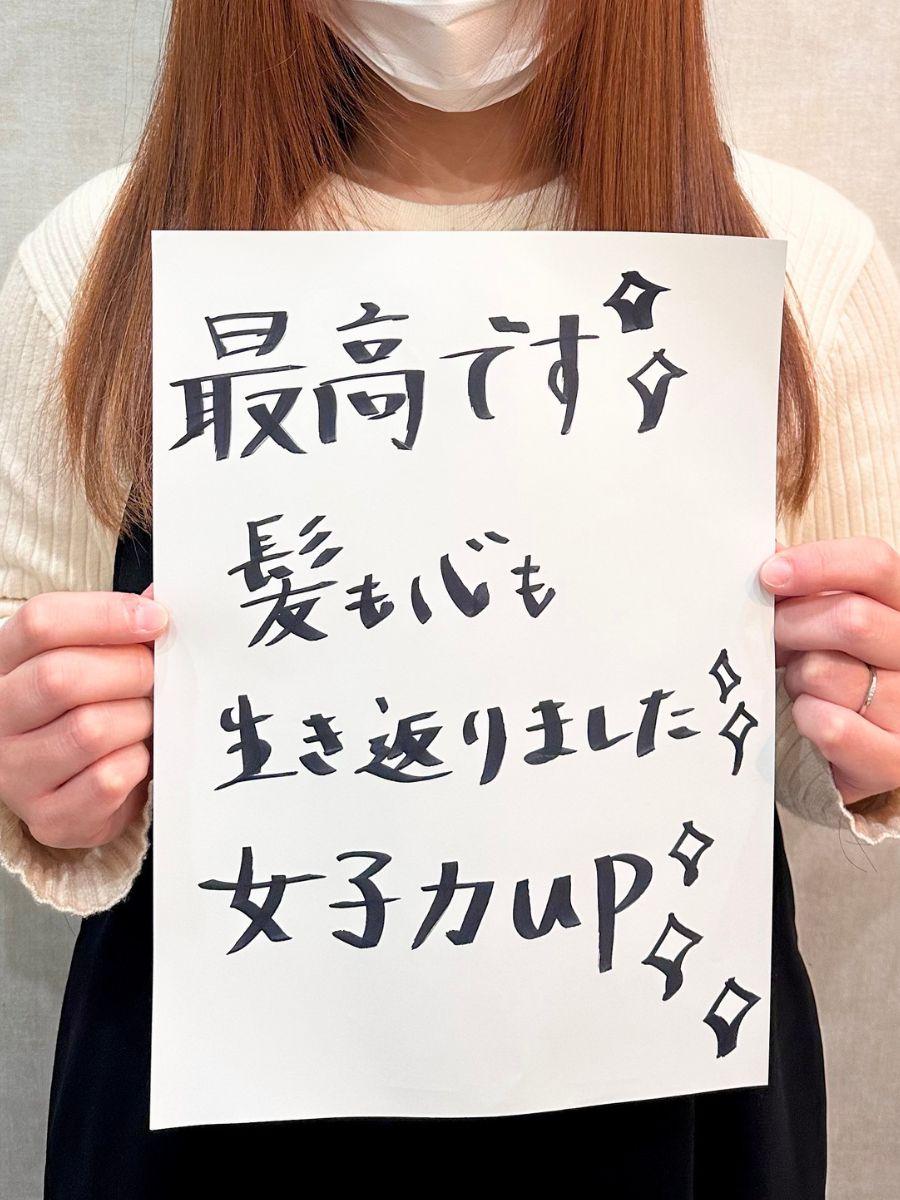 最高です
髪も心も
生き返りました
女子力up